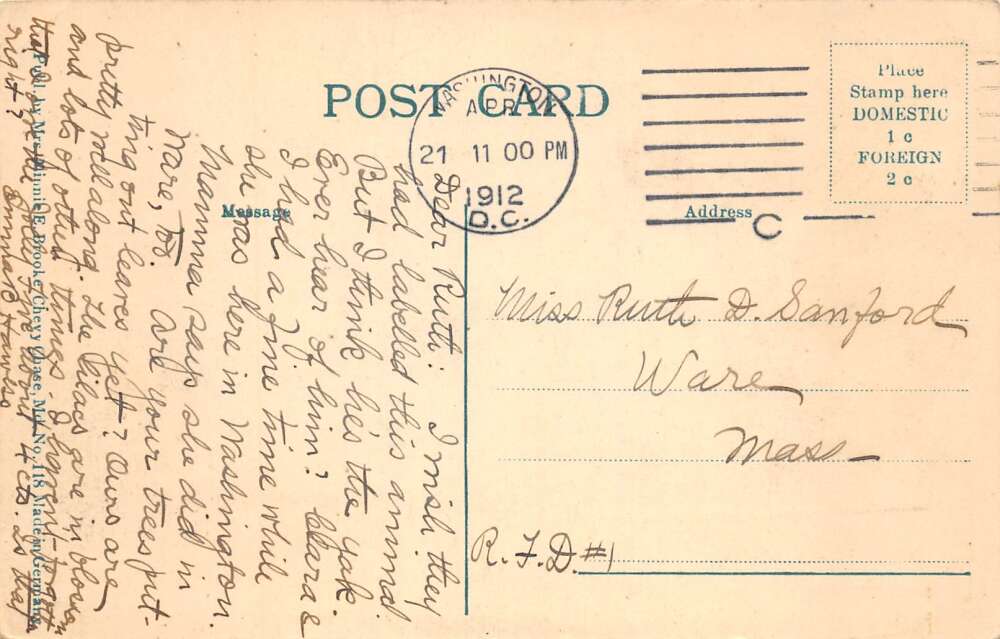 POST CARD
WASHINGTON
APR
21 11 00 PM
1912
D.C.
C
Place
Stamp here
DOMESTIC
1 c
FOREIGN
2 c
Message
Address
Dear Ruth: I wish they
had labelled this animal
But I think he's the yak.
Ever hear of him? Clara &
I had a fine time while
she was here in Washington.
Mamma says she did in
Ware, too. Are your trees put-
ting out leaves yet? Ours are
pretty well along. The lilacs are in bloom
and lots of other things.
that
right?
4 cts. Is that
Miss Ruth D. Sanford
Ware
Mass
R.F.D. #1
Publ. by Mrs. Minnie E. Brooke Chevy Chase, Md. No. 118 Made in Germany